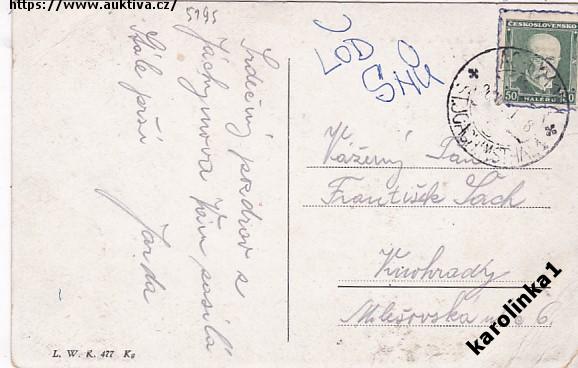 https://www.auktiva.cz/
5195
Srdečný pozdrav z
Jáchymova Vám posílá
Jarda
Stále prší
LOĎ
SNŮ
ČESKOSLOVENSKO
50 50
HALÉŘŮ
Vážený Pan
František Šach
Vinohrady
Milešovská 6
L. W. K. 477 Kg
karolinka1